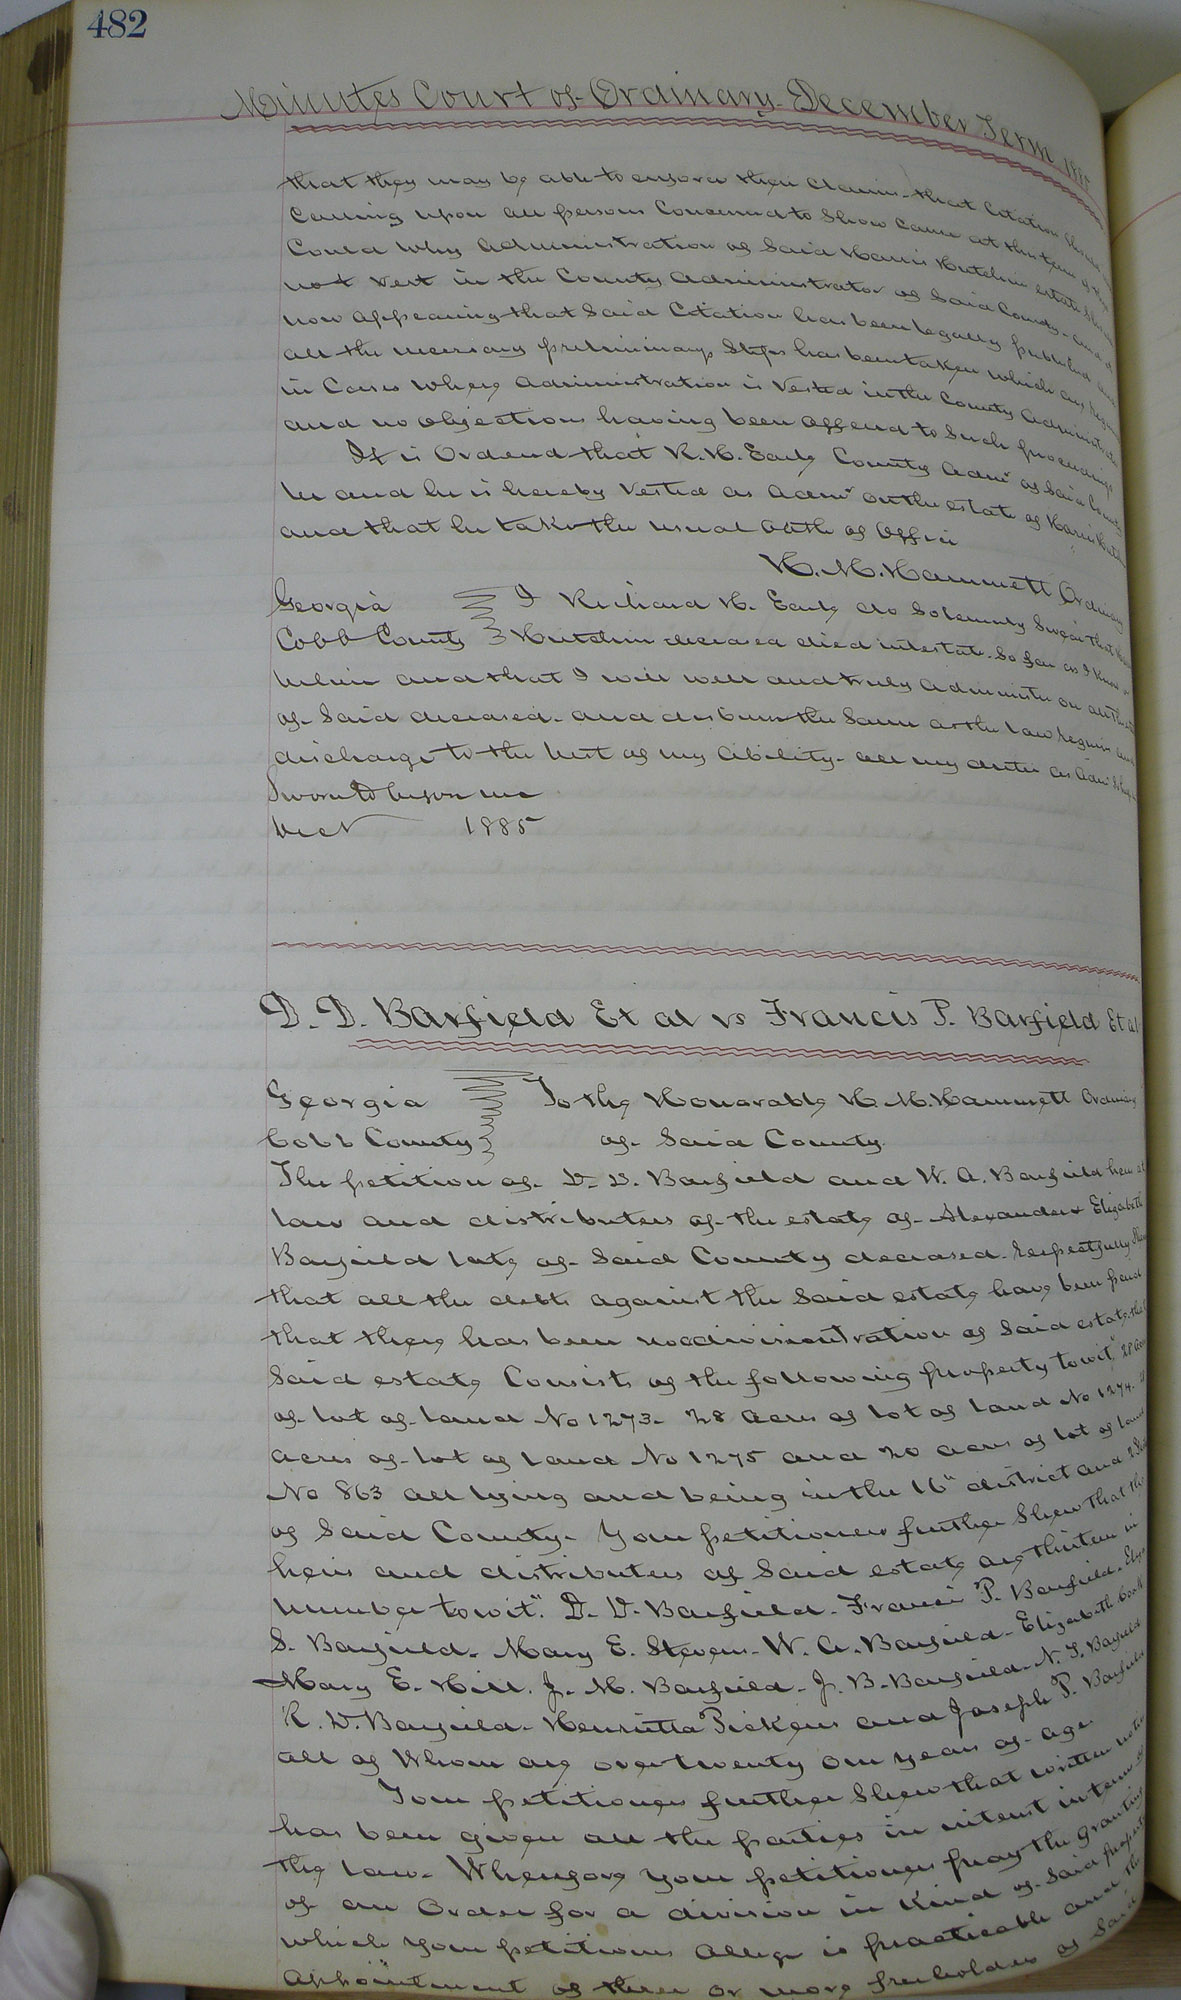 482
Minutes Court of Ordinary December Term 1885
that they may be able to enforce their claims that Citation
Calling upon all persons Concerned to Show Cause at this term of
Could Why Administration of Said Harris Hutchin estate
not Vest in the County Administrator of Said County and it
now appearing that Said Citation has been legally published and
all the necessary preliminary Steps has been taken which are
in Cases Where Administration is Vested in the County
and no objections having been offered to Such proceedings
It is Ordered that R. H. Early County Admr of Said County
be and he is hereby Vested as Admr on the estate of Harris
and that he take the usual Oath of Office
H. M. Hammett Ordinary
Georgia I Richard H. Early do Solemnly Swear that
Cobb County Hutchin deceased died intestate So far as I know or
believe and that I will well and truly Administer on all the
of Said deceased and disburse the Same as the law requires and
discharge to the best of my Ability all my duties as Admr
Sworn to before me
Dect 1885
D. D. Barfield Et al vs Francis P. Barfield Et al
Georgia To the Honorable H. M. Hammett Ordinary
Cobb County of Said County
The petition of D. D. Barfield and W. A. Barfield heirs at
law and distributees of the estate of Alexander & Elizabeth
Barfield late of Said County deceased respectfully
that all the debts against the Said estate have been paid
that there has been no administration of Said estate that
Said estate Consists of the following property to wit
of lot of land No 1273 - 28 acres of lot of land No 1274
acres of lot of land No 1275 and 20 acres of lot of land
No 863 all lying and being in the 16" district and 2
of Said County. Your petitioners further Shew that the
heirs and distributees of Said estate are thirteen in
number to wit" D. D. Barfield - Francis P. Barfield
S. Barfield. Mary E. Stevens - W. A. Barfield - Elizabeth Cook
Mary E. Hill. J. M. Barfield - J. B. Barfield - N. T. Barfield
R. D. Barfield - Henrietta Pickens and Joseph P. Barfield
all of Whom are over twenty one years of age
Your petitioners further Shew that written notice
has been given all the parties in interest in terms of
the law - Wherefore your petitioners pray the Granting
of an Order for a division in Kind of Said property
which your petitioners Allege is practicable and the
appointment of three or more freeholders of Said